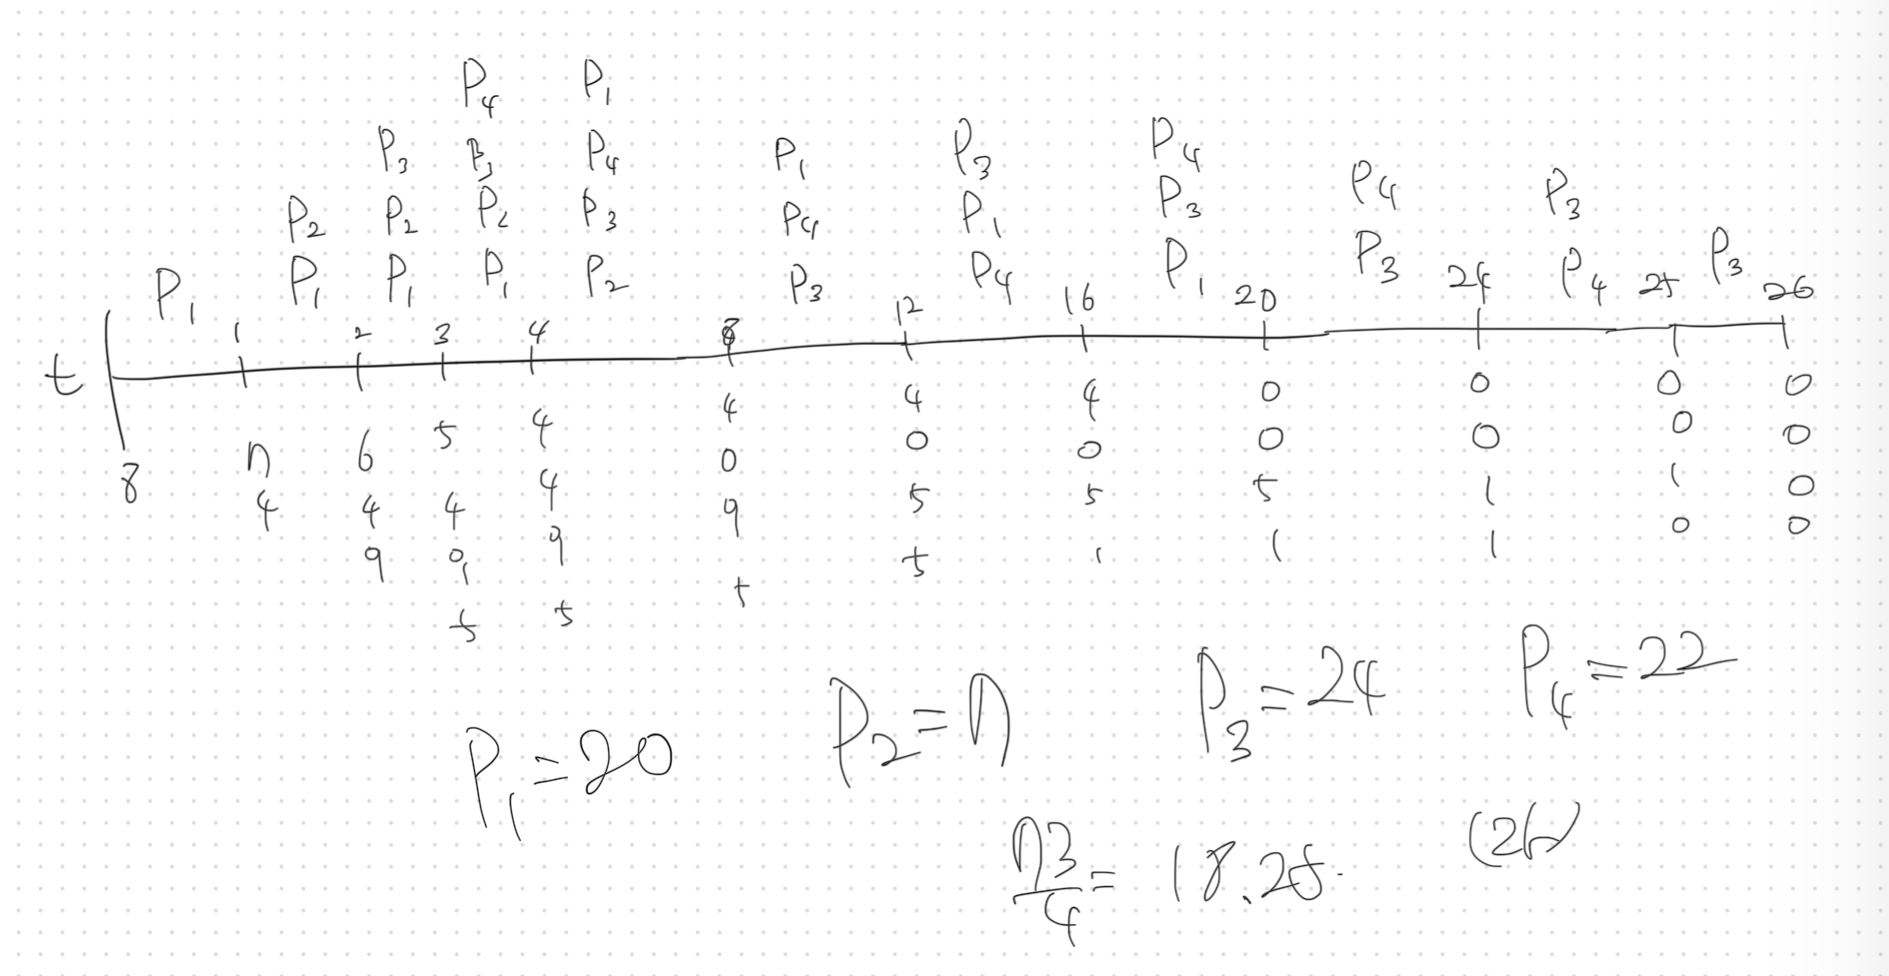 P4 P1
P3 P3 P4 P1 P3 P4
P2 P2 P2 P3 P4 P1 P3 P4 P3
P1 P1 P1 P1 P2 P3 P4 P1 P3 P4 P3
t 1 2 3 4 8 12 16 20 24 25 26
8 7 6 5 4 4 4 4 0 0 0 0
4 4 4 4 0 0 0 0 0 0 0
9 9 9 9 5 5 5 1 1 0
5 5 5 5 1 1 1 0 0
P1=20 P2=7 P3=24 P4=22
73/4= 18.25. (26)